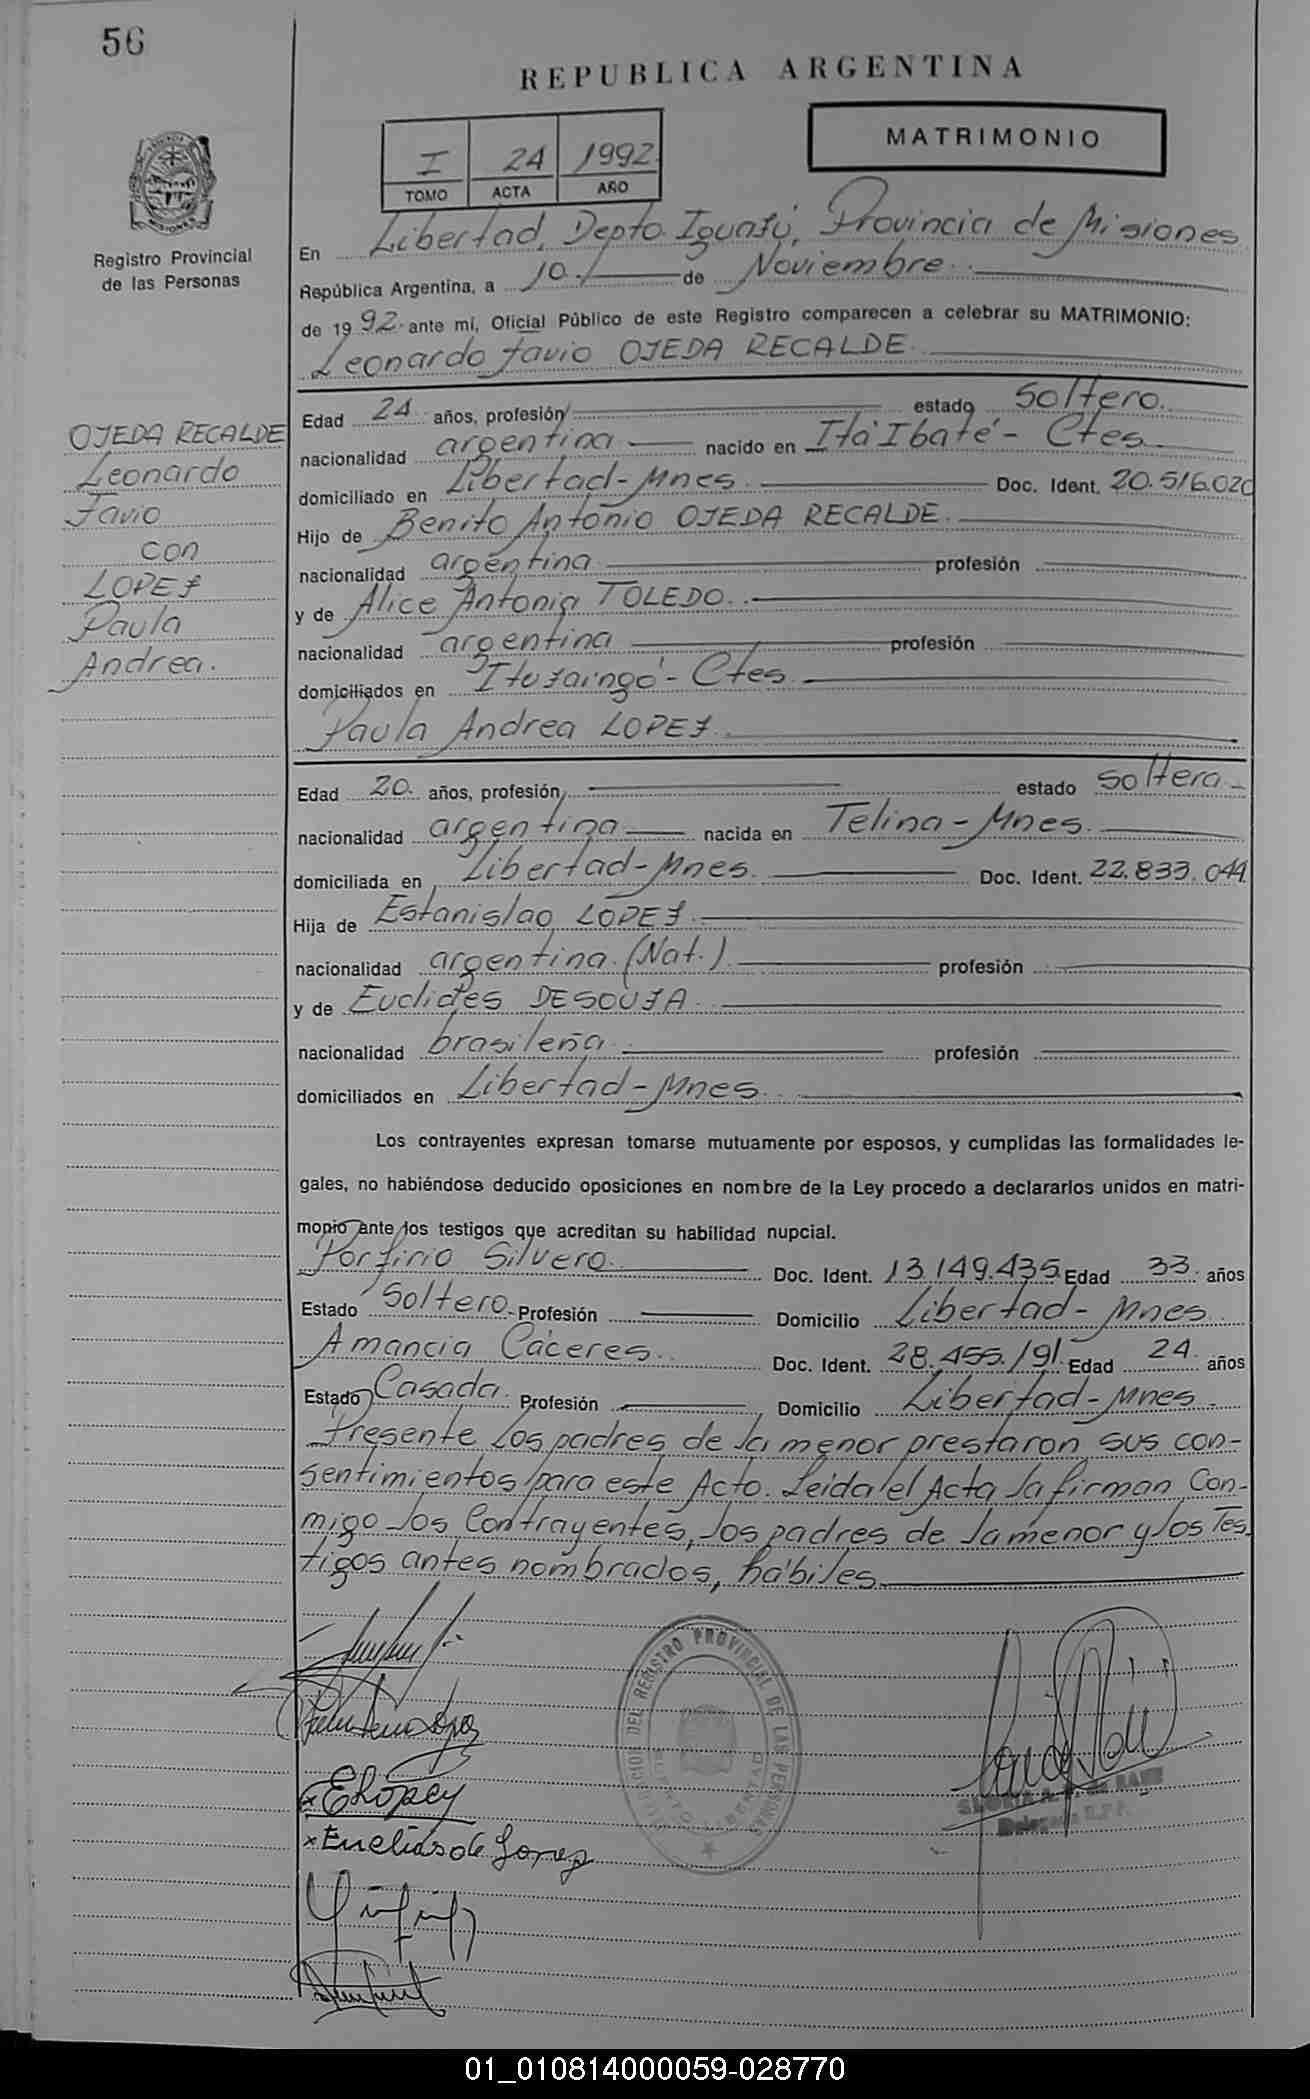 56
REPUBLICA ARGENTINA
MATRIMONIO
I 24 1992
TOMO ACTA AÑO
PROVINCIA DE MISIONES
Registro Provincial
de las Personas
En Libertad, Depto. Iguazú, Provincia de Misiones
República Argentina, a 10 de Noviembre
de 1992 ante mí, Oficial Público de este Registro comparecen a celebrar su MATRIMONIO:
Leonardo Favio OJEDA RECALDE
Edad 24 años, profesión estado Soltero.
nacionalidad argentina nacido en Itá Ibaté - Ctes
domiciliado en Libertad-Mnes. Doc. Ident. 20.516.020
Hijo de Benito Antonio OJEDA RECALDE
nacionalidad argentina profesión
y de Alice Antonia TOLEDO.
nacionalidad argentina profesión
domiciliados en Ituzaingó - Ctes
Paula Andrea LOPEZ
OJEDA RECALDE
Leonardo
Favio
con
LOPEZ
Paula
Andrea.
Edad 20. años, profesión estado soltera
nacionalidad argentina nacida en Telina-Mnes.
domiciliada en Libertad-Mnes. Doc. Ident. 22.833.044
Hija de Estanislao LOPEZ
nacionalidad argentina (Nat.) profesión
y de Euclides DESOUZA
nacionalidad brasileña profesión
domiciliados en Libertad-Mnes
Los contrayentes expresan tomarse mutuamente por esposos, y cumplidas las formalidades le-
gales, no habiéndose deducido oposiciones en nombre de la Ley procedo a declararlos unidos en matri-
monio ante los testigos que acreditan su habilidad nupcial.
Porfirio Silvero Doc. Ident. 13.149.435 Edad 33 años
Estado Soltero Profesión Domicilio Libertad-Mnes
Amancia Cáceres Doc. Ident. 28.455.191 Edad 24 años
Estado Casada Profesión Domicilio Libertad-Mnes
Presente los padres de la menor prestaron sus con-
sentimientos para este Acto. Leida el Acta la firman Con-
migo los Contrayentes, los padres de la menor y los Tes-
tigos antes nombrados, hábiles
DEL REGISTRO PROVINCIAL DE LAS PERSONAS
LIBERTAD
01_010814000059-028770